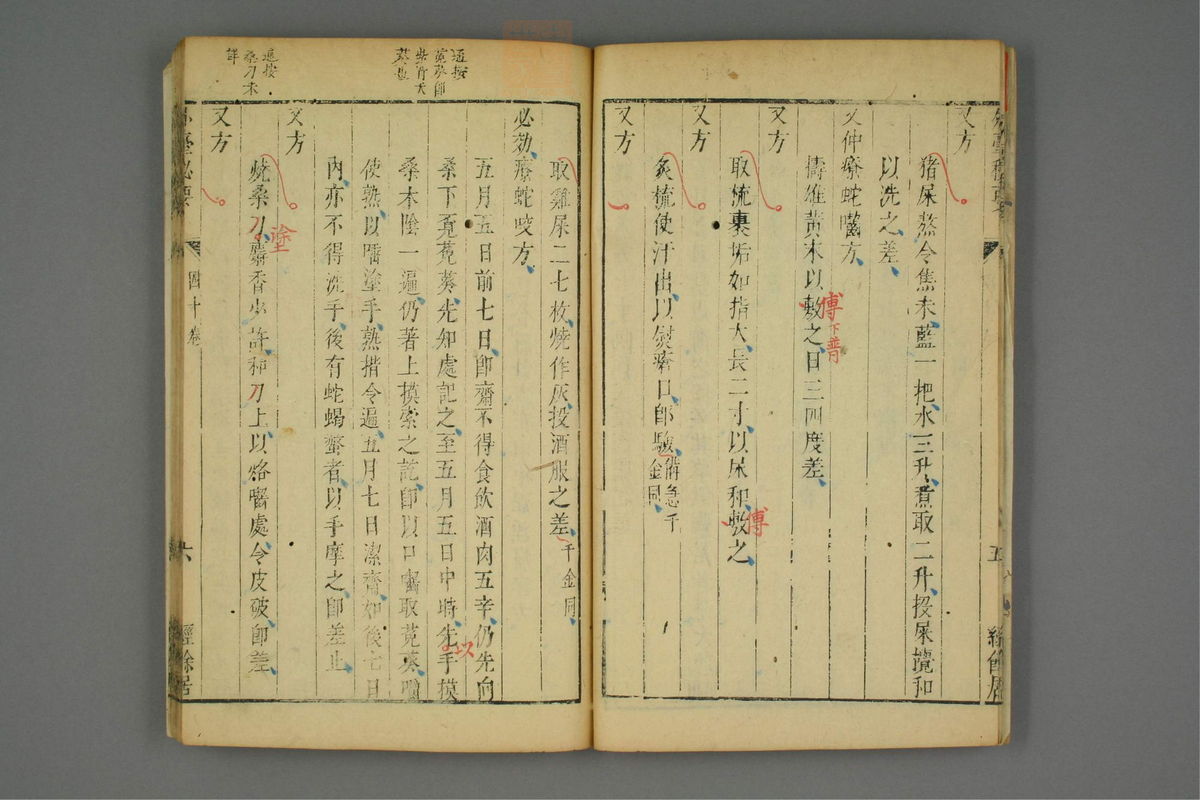 又方
猪屎熬令焦末藍一把水三升煮取二升投屎攪和
以洗之差
又仲療蛇嚙方
擣雄黄末以敷之日三四度差
傅
下普
又方
取梳裹垢如指大長二寸以尿和敷之
傅
又方
炙梳使汗出以熨瘡口即驗備急千金同
又方
五
取雞屎二七枚燒作灰投酒服之差千金同
必効療蛇咬方
五月五日前七日即齋不得食飲酒肉五辛仍先向
桑下覓菟葵先知處記之至五月五日中時先手摸
以
桑木陰一遍仍著上摸索之訖即以口嚙取菟葵嚼
使熟以唾塗手熟揩令遍五月七日潔齋如後七日
内亦不得洗手後有蛇蝎螫者以手摩之即差止
又方
燒桑刀麝香少許和刀上以烙嚙處令皮破即差
塗
又方
四十卷
六
經餘居
桑刀未
詳